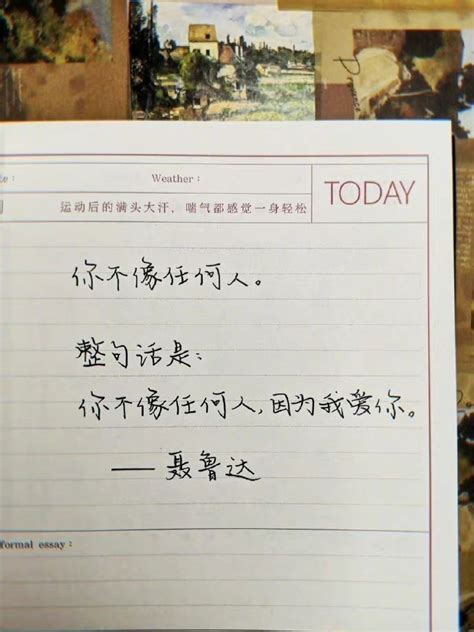 Weather：
TODAY
运动后的满头大汗，喘气都感觉一身轻松
你不像任何人。
整句话是：
你不像任何人，因为我爱你。
——聂鲁达
formal essay：